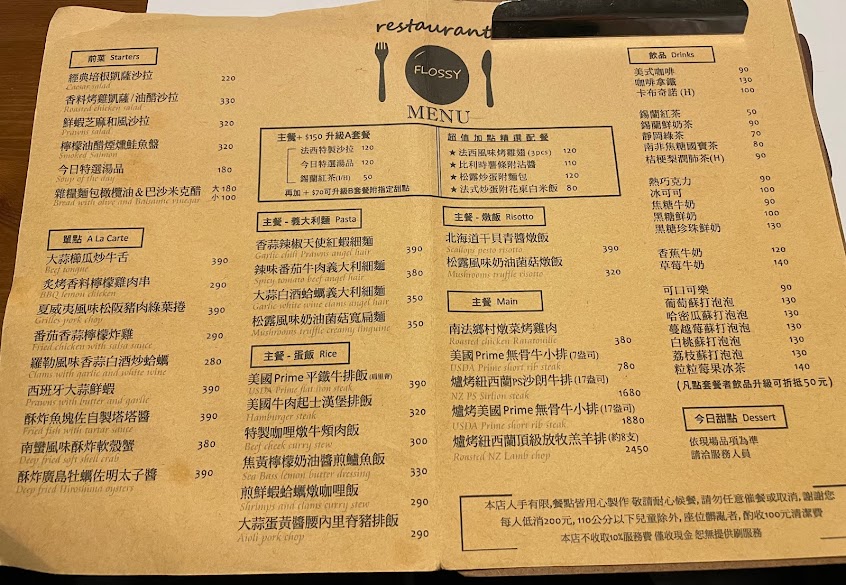 restaurant
FLOSSY
MENU
前菜 Starters
經典培根凱薩沙拉 220
Caesar salad
香料烤雞凱薩/油醋沙拉 330
Roasted chicken salad
鮮蝦芝麻和風沙拉 320
Prawns salad
檸檬油醋煙燻鮭魚盤 320
Smoked Salmon
今日特選湯品 180
Soup of the day
雜糧麵包橄欖油&巴沙米克醋 大180 小100
Bread with olive and Balsamic vinegar
單點 A La Carte
大蒜櫛瓜炒牛舌 390
Beef tongue
炙烤香料檸檬雞肉串 390
BBQ lemon chicken
夏威夷風味松阪豬肉綠葉捲 390
Grilles pork chop
番茄香蒜檸檬炸雞 290
Fried chicken with salsa sauce
羅勒風味香蒜白酒炒蛤蠣 280
Clams with garlic and white wine
西班牙大蒜鮮蝦 390
Prawns with butter and garlic
酥炸魚塊佐自製塔塔醬 390
Fried fish with tartar sauce
南蠻風味酥炸軟殼蟹 380
Deep fried soft shell crab
酥炸廣島牡蠣佐明太子醬 390
Deep fried Hiroshima oystery
主餐+$150升級A套餐
法西特製沙拉 120
今日特選湯品 120
錫蘭紅茶(I/H) 50
再加+$70可升級B套餐附指定甜點
超值加點精選配餐
★法西風味烤雞翅(3pcs) 120
★比利時薯條附沾醬 110
★松露炒蛋附麵包 120
★法式炒蛋附花東白米飯 80
主餐-義大利麵 Pasta
香蒜辣椒天使紅蝦細麵 390
Garlic chili Prawns angel hair
辣味番茄牛肉義大利細麵 380
Spicy tomato beef angel hair
大蒜白酒蛤蠣義大利細麵 350
Garlic white wine clams angel hair
松露風味奶油菌菇寬扁麵 350
Mushrooms truffle creamy linguine
主餐-蛋飯 Rice
美國Prime平鐵牛排飯 390
USDA Prime flat iron steak
美國牛肉起士漢堡排飯 320
Hamburger steak
特製咖哩燉牛頰肉飯 300
Beef cheek curry stew
焦黃檸檬奶油醬煎鱸魚飯 330
Sea Bass lemon butter dressing
煎鮮蝦蛤蠣燉咖哩飯 290
Shrimps and clams curry stew
大蒜蛋黃醬腰內里脊豬排飯 290
Aioli pork chop
主餐-燉飯 Risotto
北海道干貝青醬燉飯 390
Scallops pesto risotto
松露風味奶油菌菇燉飯 320
Mushrooms truffle risotto
主餐 Main
南法鄉村燉菜烤雞肉 450
Roasted chicken Ratatouille
美國Prime無骨牛小排(7盎司) 780
USDA Prime short rib steak
爐烤紐西蘭PS沙朗牛排(17盎司) 1680
NZ PS Sirlion steak
爐烤美國Prime無骨牛小排(17盎司) 1880
USDA Prime short rib steak
爐烤紐西蘭頂級放牧羔羊排(約8支) 2450
Roasted NZ Lamb chop
飲品 Drinks
美式咖啡 90
咖啡拿鐵 130
卡布奇諾(H) 100
錫蘭紅茶 50
錫蘭鮮奶茶 90
靜岡綠茶 70
南非焦糖國寶茶 80
桔梗梨潤肺茶(H) 90
熱巧克力 90
冰可可 100
焦糖牛奶 90
黑糖鮮奶 100
黑糖珍珠鮮奶 130
香蕉牛奶 120
草莓牛奶 140
可口可樂 90
葡萄蘇打泡泡 130
哈密瓜蘇打泡泡 130
蔓越莓蘇打泡泡 130
白桃蘇打泡泡 130
荔枝蘇打泡泡 130
粒粒莓果冰茶 140
(凡點套餐者飲品升級可折抵50元)
今日甜點 Dessert
依現場品項為準
請洽服務人員
本店人手有限,餐點皆用心製作 敬請耐心候餐,請勿任意催餐或取消, 謝謝您
每人低消200元, 110公分以下兒童除外, 座位髒亂者, 酌收100元清潔費
本店不收取10%服務費 僅收現金 恕無提供刷服務